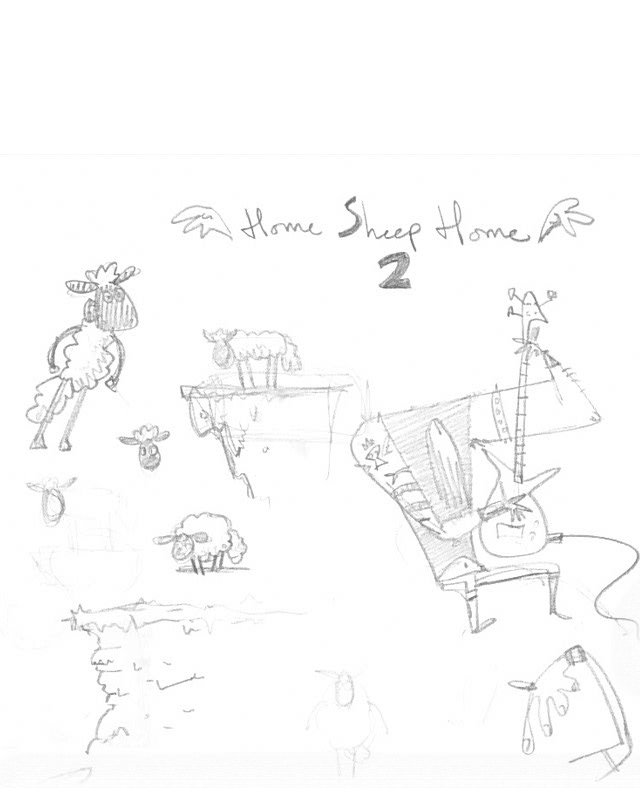 Home Sheep Home
2